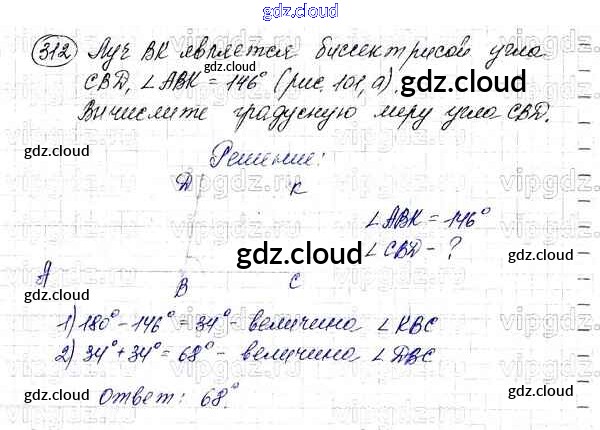 gdz.cloud
312 Луч BK является биссектрисой угла
gdz.cloud
CBD, ∠ABK = 146° (рис. 101, а)
gdz.cloud
Вычислите градусную меру угла CBD.
gdz.cloud
gdz.cloud
Решение:
vipgdz.ru
D K
∠ABK = 146°
gdz.cloud
∠CBD - ?
A B C
gdz.cloud
gdz.cloud
1) 180° - 146° = 34° - величина ∠KBC
2) 34° + 34° = 68° - величина ∠DBC
gdz.cloud
gdz.cloud
Ответ: 68°.
gdz.cloud